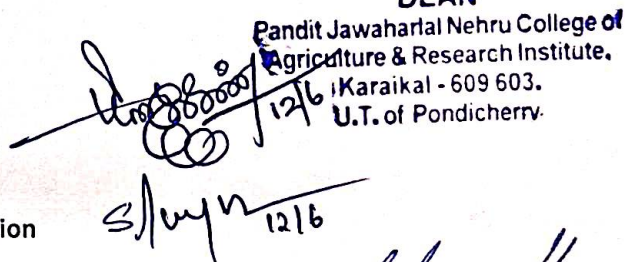 DEAN
Pandit Jawaharlal Nehru College of
Agriculture & Research Institute,
Karaikal - 609 603.
U.T. of Pondicherry.
12/6
12/6
ion